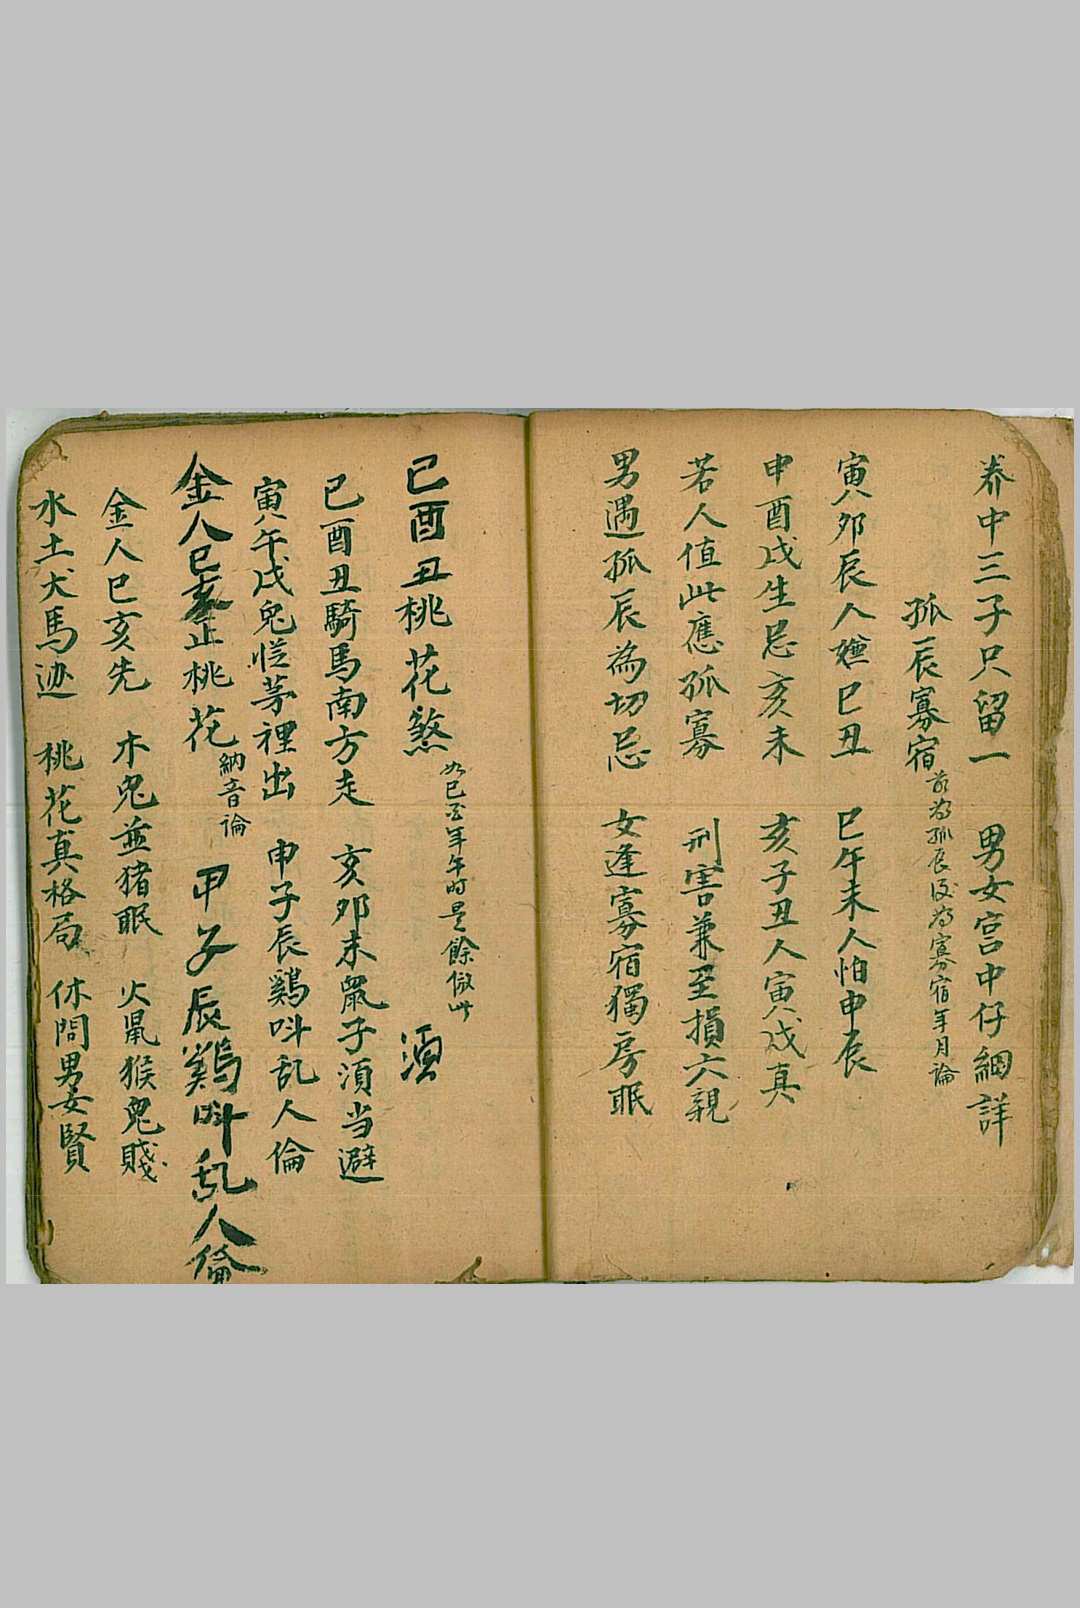 养中三子只留一 男女宫中仔細詳
孤辰寡宿 前為孤辰後為寡宿年月論
寅卯辰人嫌巳丑 巳午未人怕申辰
申酉戌生忌亥未 亥子丑人寅戌真
若人值此應孤寡 刑害兼至損六親
男遇孤辰為切忌 女逢寡宿獨房眠
巳酉丑桃花煞 如巳酉年午时是餘倣此 須
巳酉丑騎馬南方走 亥卯未鼠子須当避
寅午戌兔從茅裡出 申子辰鷄呌乱人倫
金人巳亥正桃花 納音論 甲子辰鷄呌乱人倫
金人巳亥先 木兔並猪眠 火鼠猴兔賤
水土犬馬迯 桃花真格局 休問男女賢